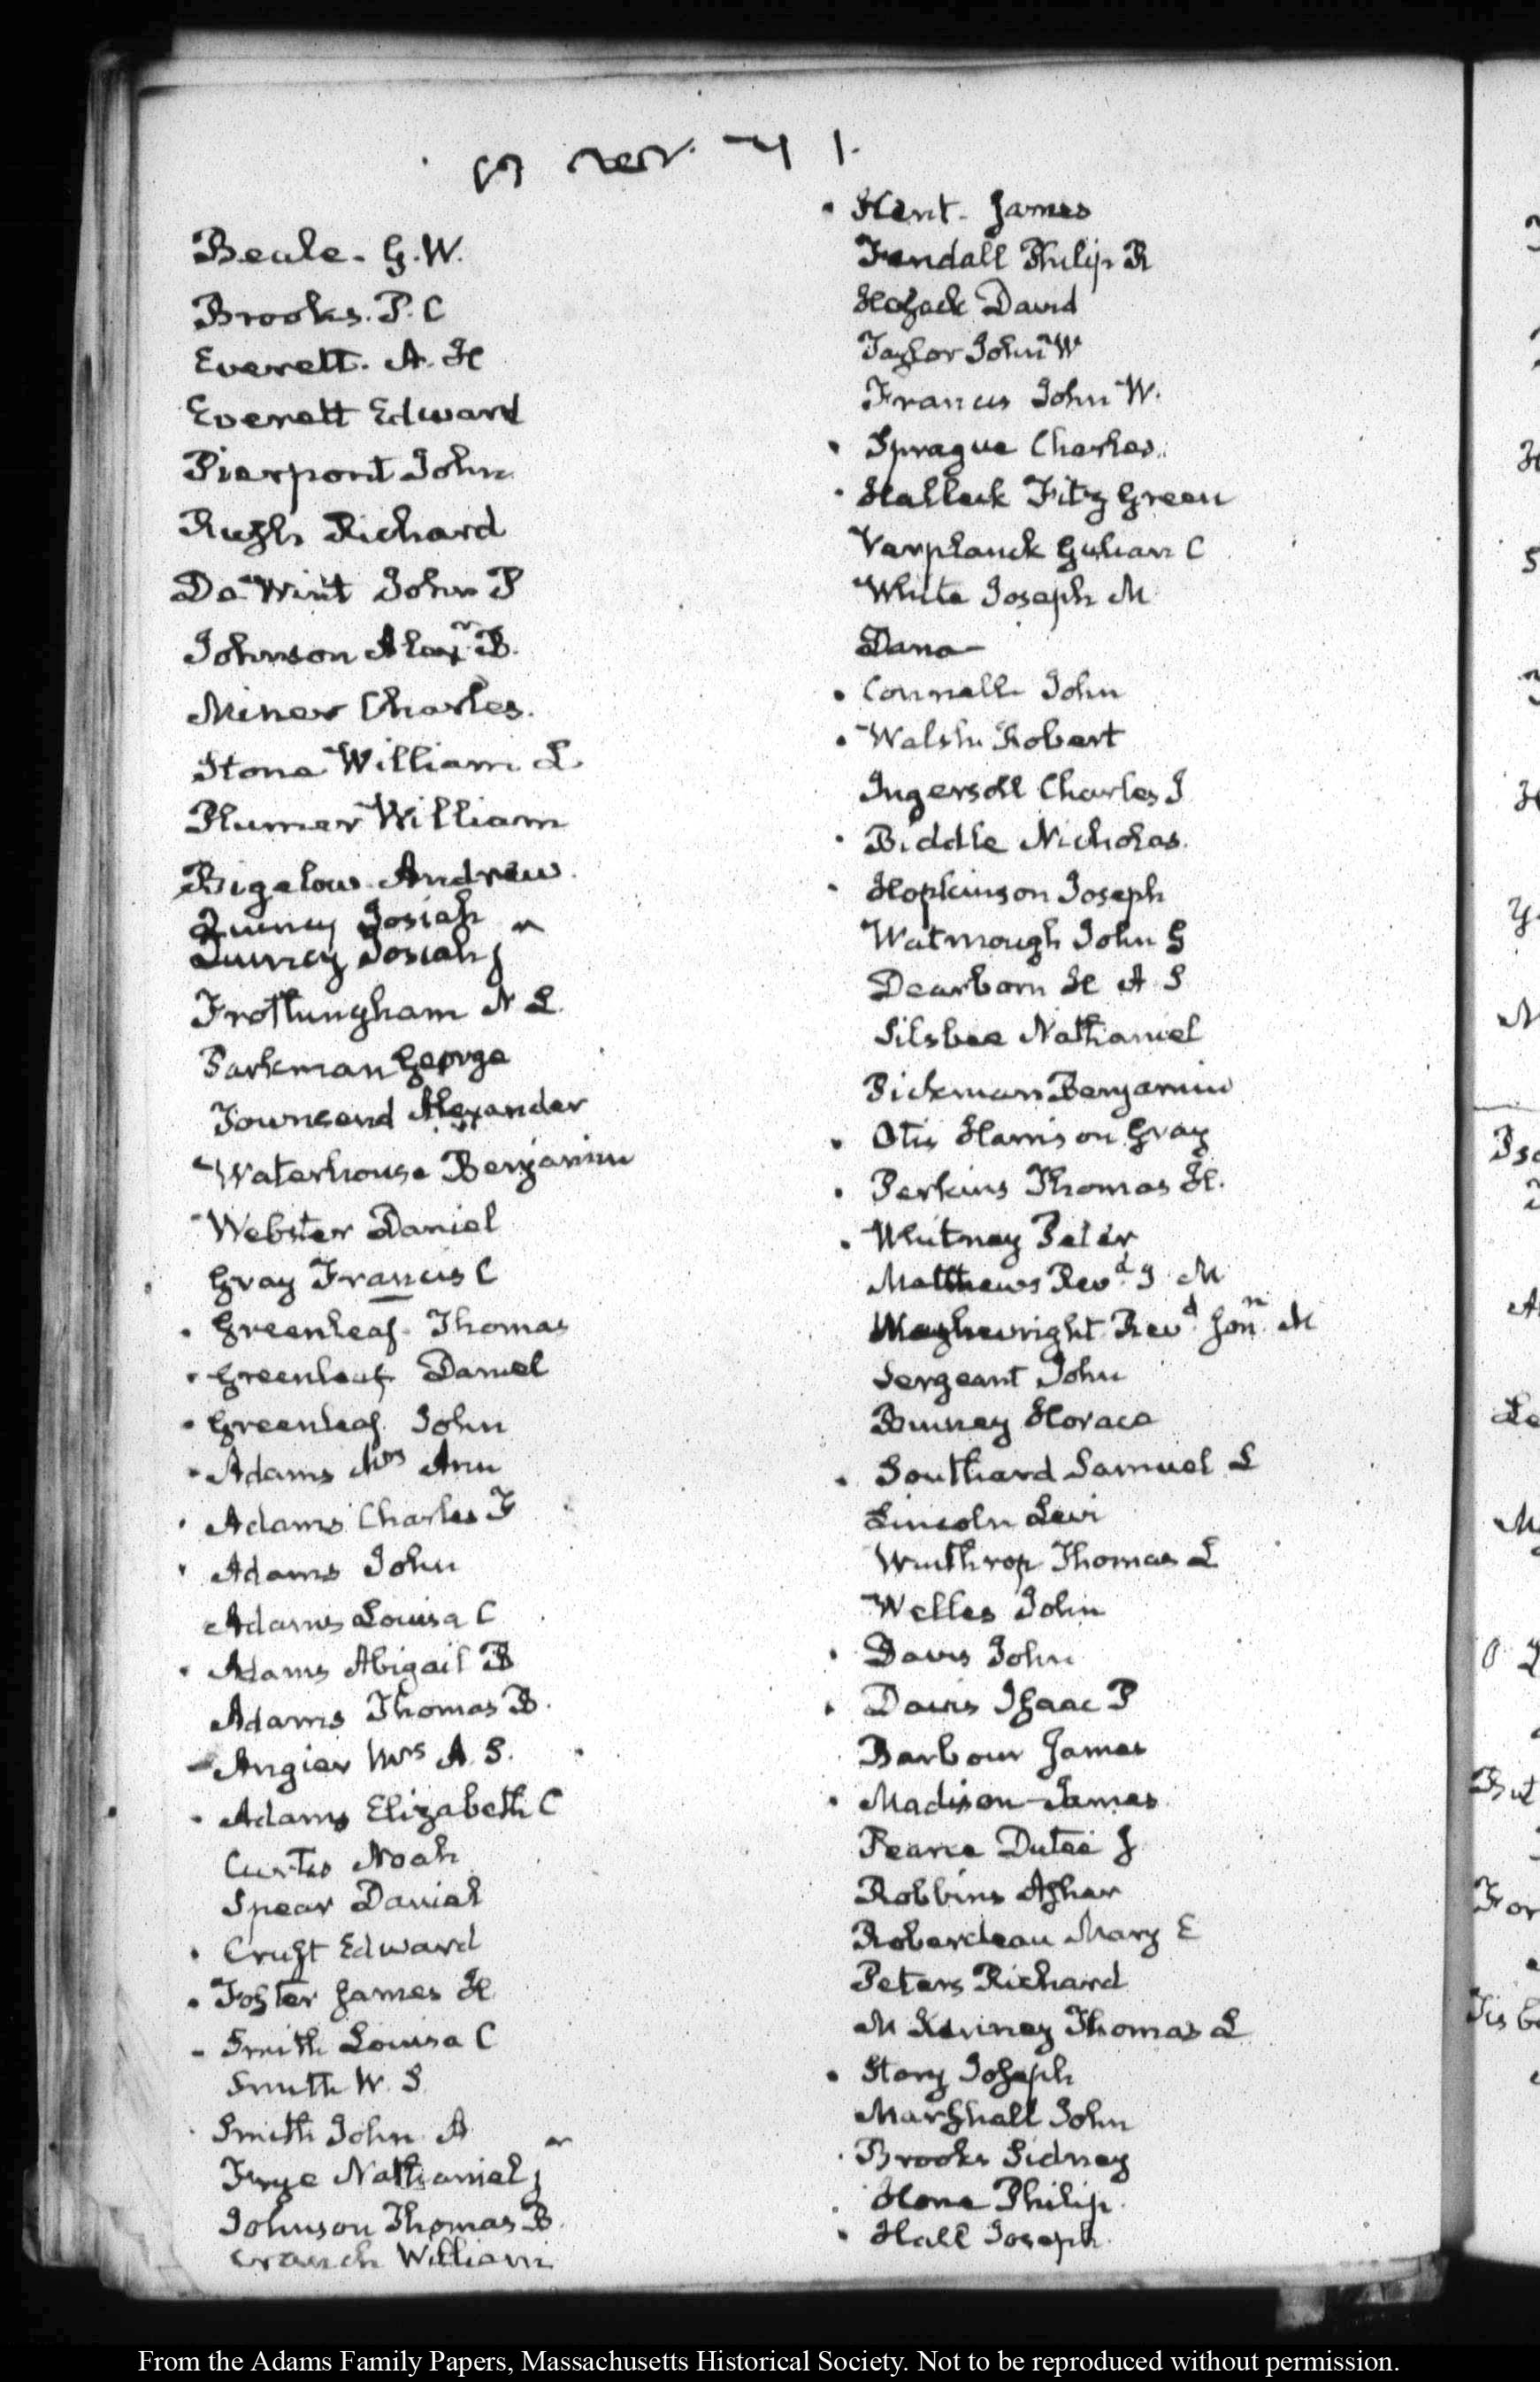 Beale. G. W.
Brooks. P. C
Everett. A. H
Everett Edward
Pierpont John
Rush Richard
De Wint John P
Johnson Alexr. B.
Miner Charles.
Stone William L
Plumer William
Bigelow Andrew.
Quincy Josiah
Quincy Josiah jr
Frothingham N L.
Parkman George
Townsend Alexander
Waterhouse Benjamin
Webster Daniel
Gray Francis C
• Greenleaf Thomas
• Greenleaf Daniel
• Greenleaf John
• Adams Mrs Ann
• Adams Charles F
• Adams John
Adams Louisa C
• Adams Abigail B
Adams Thomas B.
Angier Mrs A. S.
• Adams Elizabeth C
Curtis Noah
Spear Daniel
• Cruft Edward
• Foster James H
- Smith Louisa C
Smith W. S
Smith John A
Frye Nathaniel jr
Johnson Thomas B.
Cranch William
• Kent. James
Fendall Philip R
Hosack David
Taylor John W
Francis John W.
• Sprague Charles.
• Halleck Fitz Green
Verplanck Gulian C
White Joseph M
Dana
• Connell John
• Walsh Robert
Ingersoll Charles J
• Biddle Nicholas.
• Hopkinson Joseph
Watmough John G
Dearborn H A S
Silsbee Nathaniel
Pickman Benjamin
• Otis Harrison Gray
• Perkins Thomas H.
• Whitney Peter
Matthews Revd. J M
Waynwright Revd. Jonn. M
Sergeant John
Binney Horace
• Southard Samuel L
Lincoln Levi
Winthrop Thomas L
Welles John
• Davis John
• Davis Isaac P
Barbour James
• Madison James
Pearce Dutee J
Robbins Asher
Roberdeau Mary E
Peters Richard
M Kenney Thomas L
• Story Joseph
Marshall John
• Brooks Sidney
• Hone Philip.
• Hall Joseph.
From the Adams Family Papers, Massachusetts Historical Society. Not to be reproduced without permission.